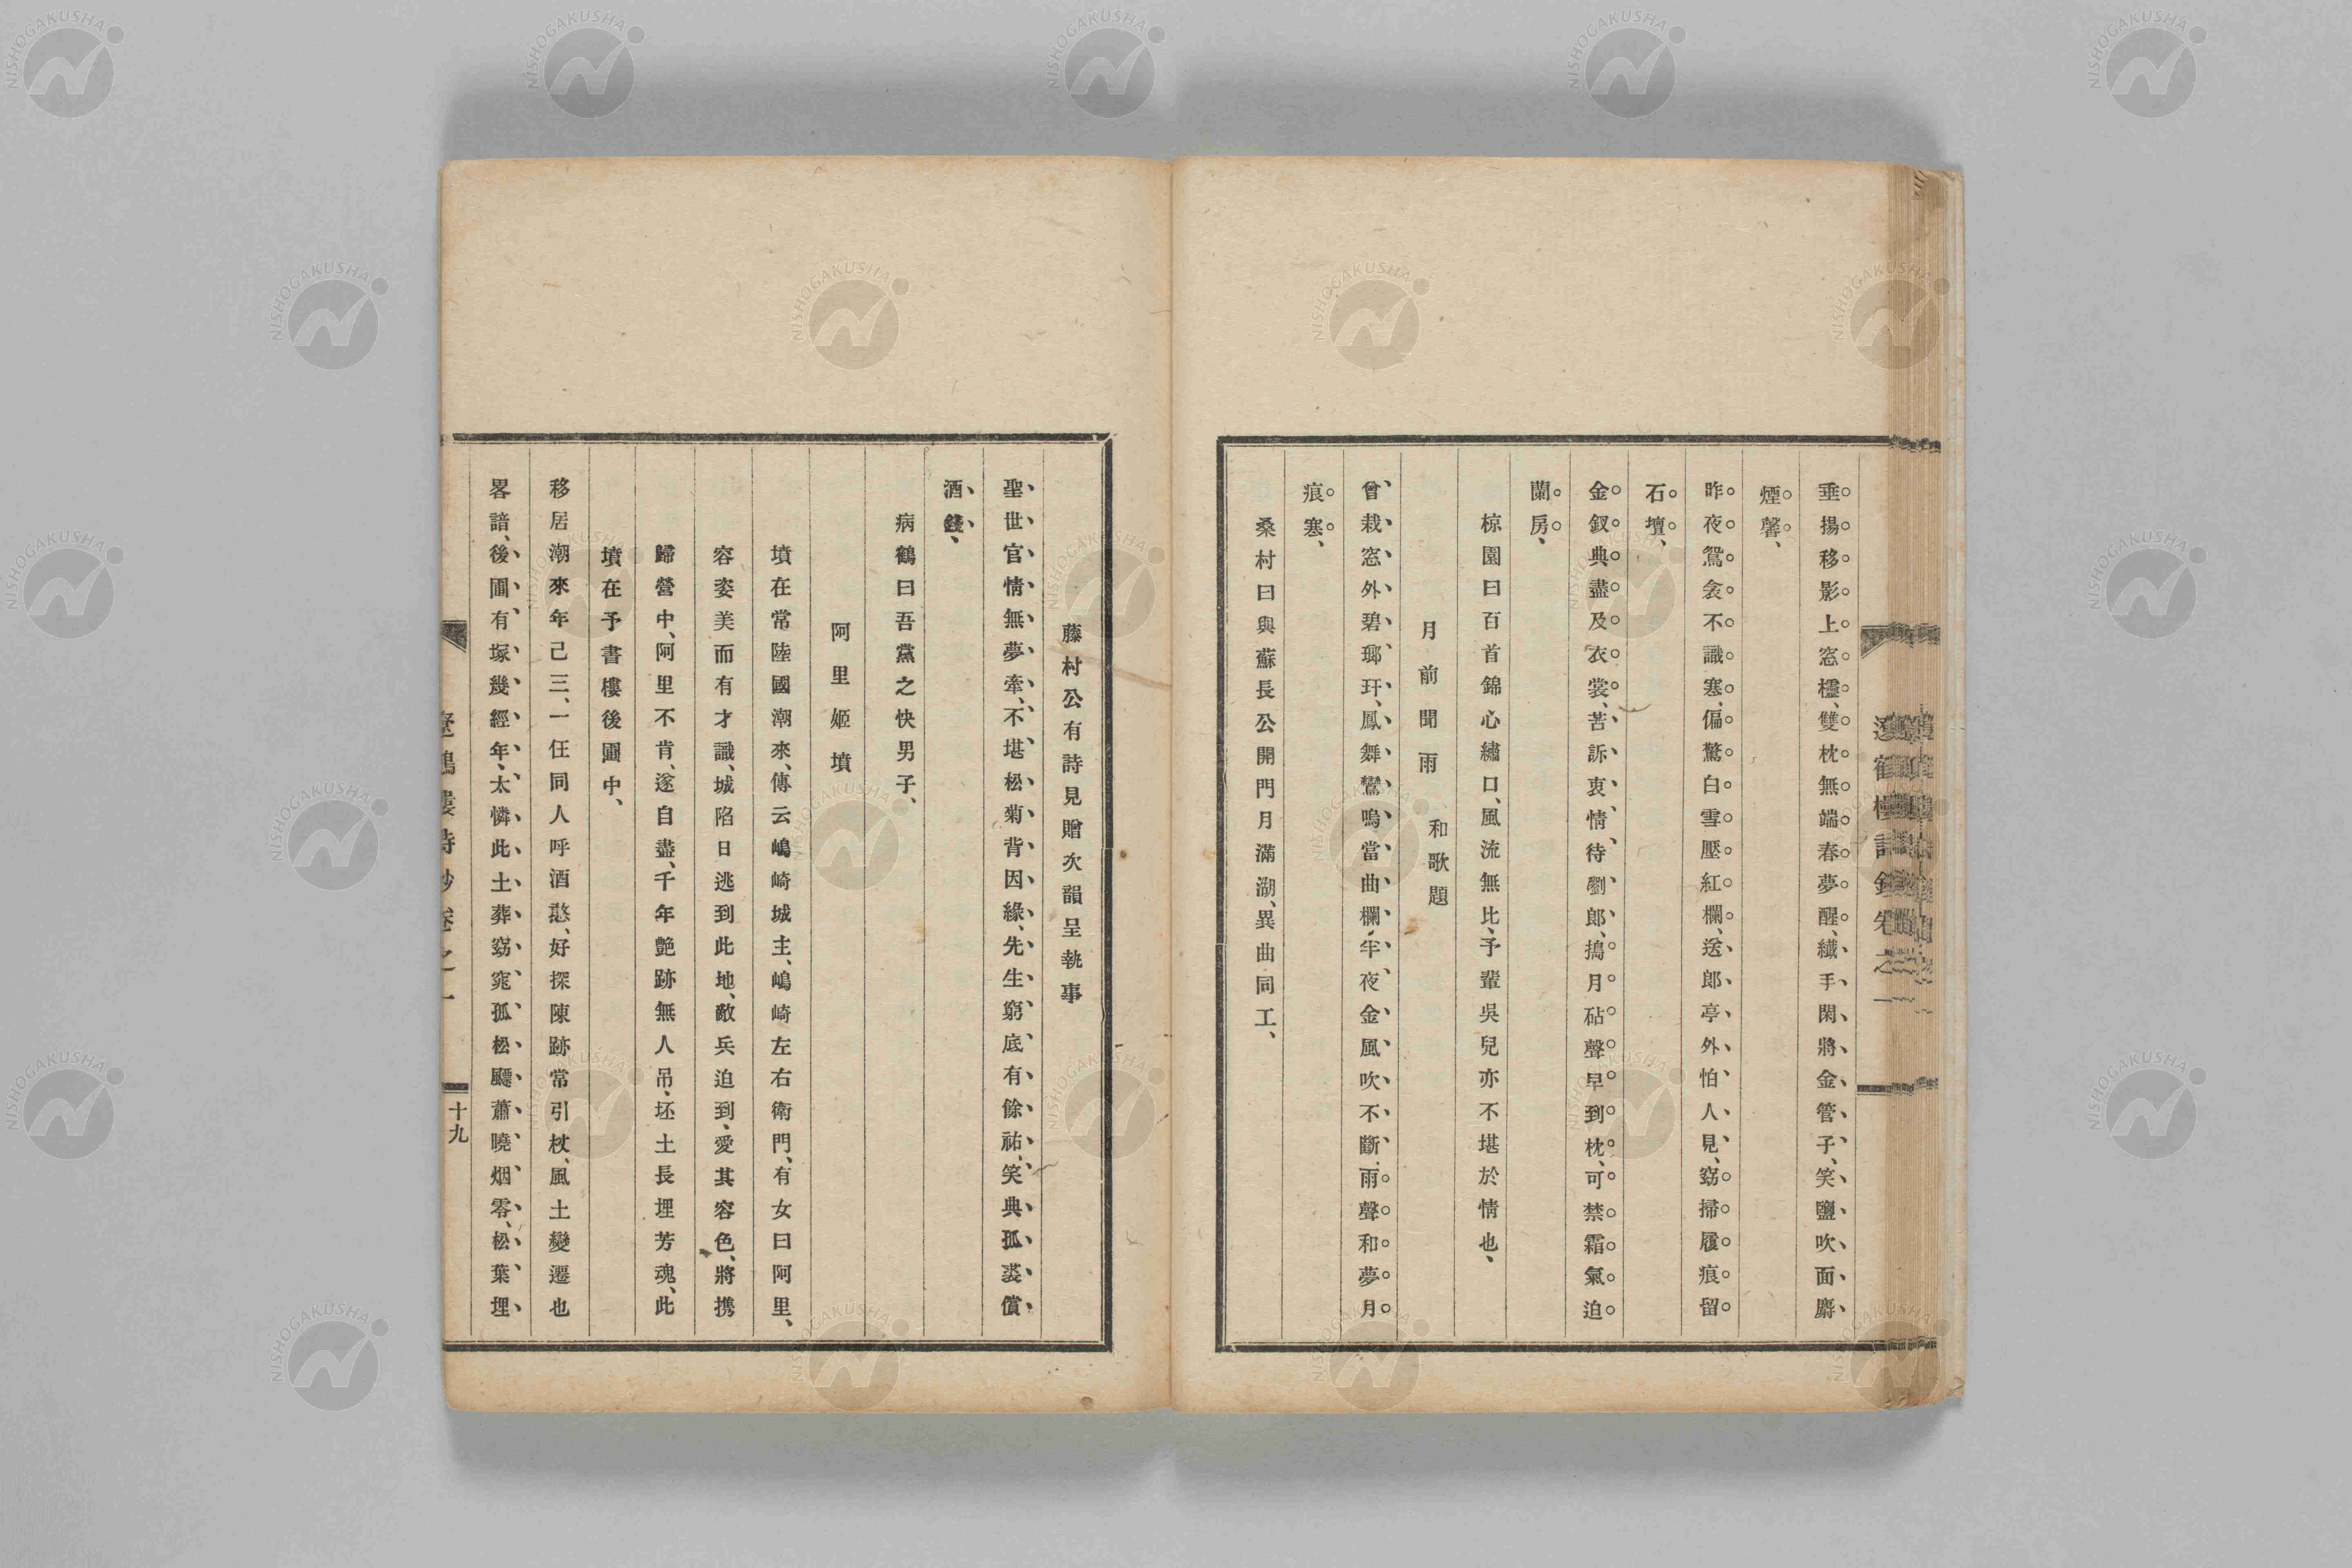 垂揚移影上窓櫺、雙枕無端春夢醒、纎手閑將金管子、笑鹽吹面麝
煙馨、
昨夜鴛衾不識寒、偏驚白雪壓紅欄、送郎亭外怕人見、窈掃履痕留
石壇、
金釵典盡及衣裳、苦訴衷情待劉郎、搗月砧聲早到枕、可禁霜氣迫
蘭房、
椋園曰百首錦心繡口、風流無比、予輩吳兒亦不堪於情也、
月前聞雨 和歌題
曾栽窓外碧瑯玕、鳳舞鸞鳴當曲欄、半夜金風吹不斷、雨聲和夢月
痕寒、
桑村曰與蘇長公開門月滿湖、異曲同工、
藤村公有詩見贈次韻呈執事
聖世官情無夢牽、不堪松菊背因緣、先生窮底有餘祐、笑典孤裘償
酒錢、
病鶴曰吾黨之快男子、
阿里姬墳
墳在常陸國潮來、傳云嶋崎城主、嶋崎左右衛門、有女曰阿里、
容姿美而有才識、城陷日逃到此地、敵兵迫到、愛其容色、將携
歸營中、阿里不肯、遂自盡、千年艶跡無人吊、坯土長埋芳魂、此
墳在予書樓後圃中、
移居潮來年己三、一任同人呼酒憨、好探陳跡常引杖、風土變遷也
畧諳、後圃有塚幾經年、太憐此土葬窈窕孤松颼蕭曉烟零、松葉埋
遼鶴樓詩鈔卷之一
十九